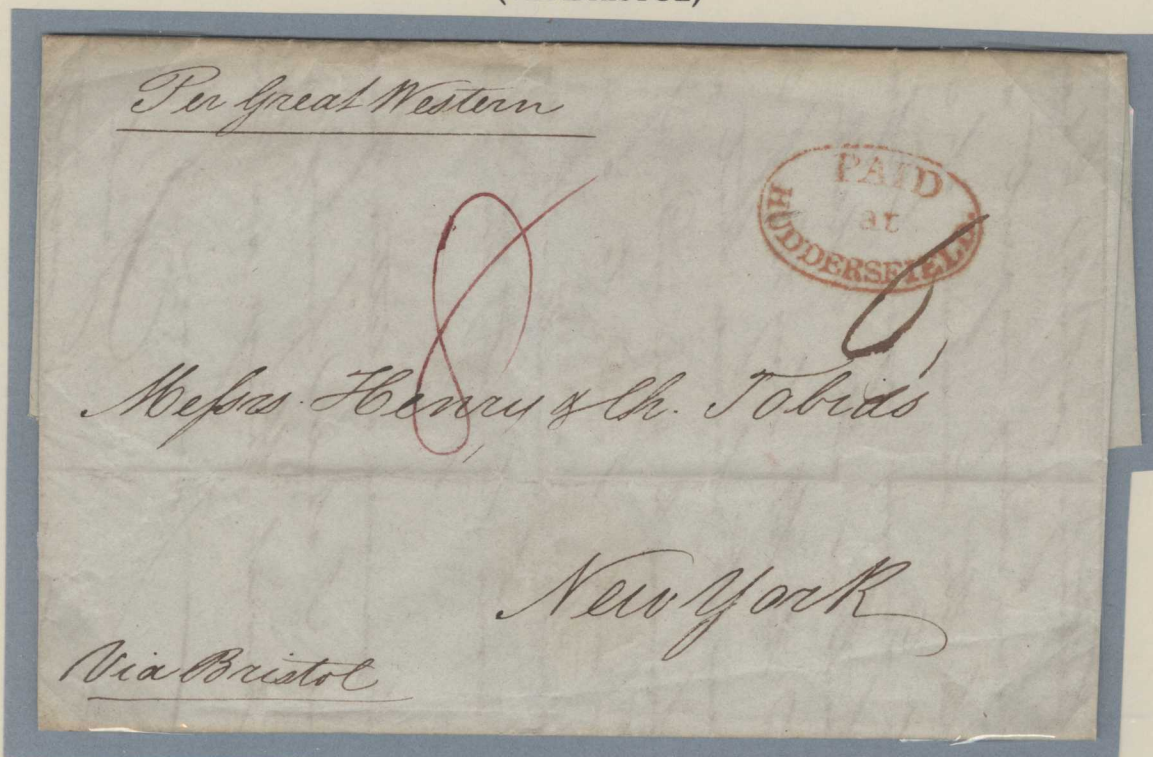 Per Great Western
PAID
at
HUDDERSFIELD
8
6
Messrs. Henry & Ch. Tobias
New York
Via Bristol